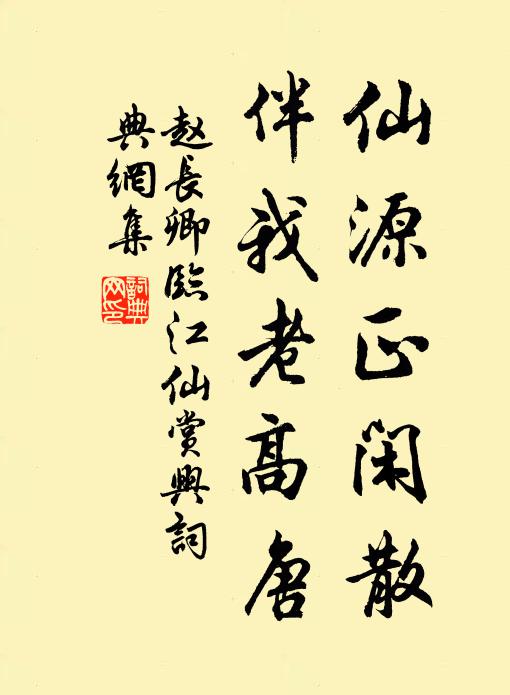 仙源正闲散
伴我老高唐
赵長卿臨江仙賞興詞
典網集
詞典
网印